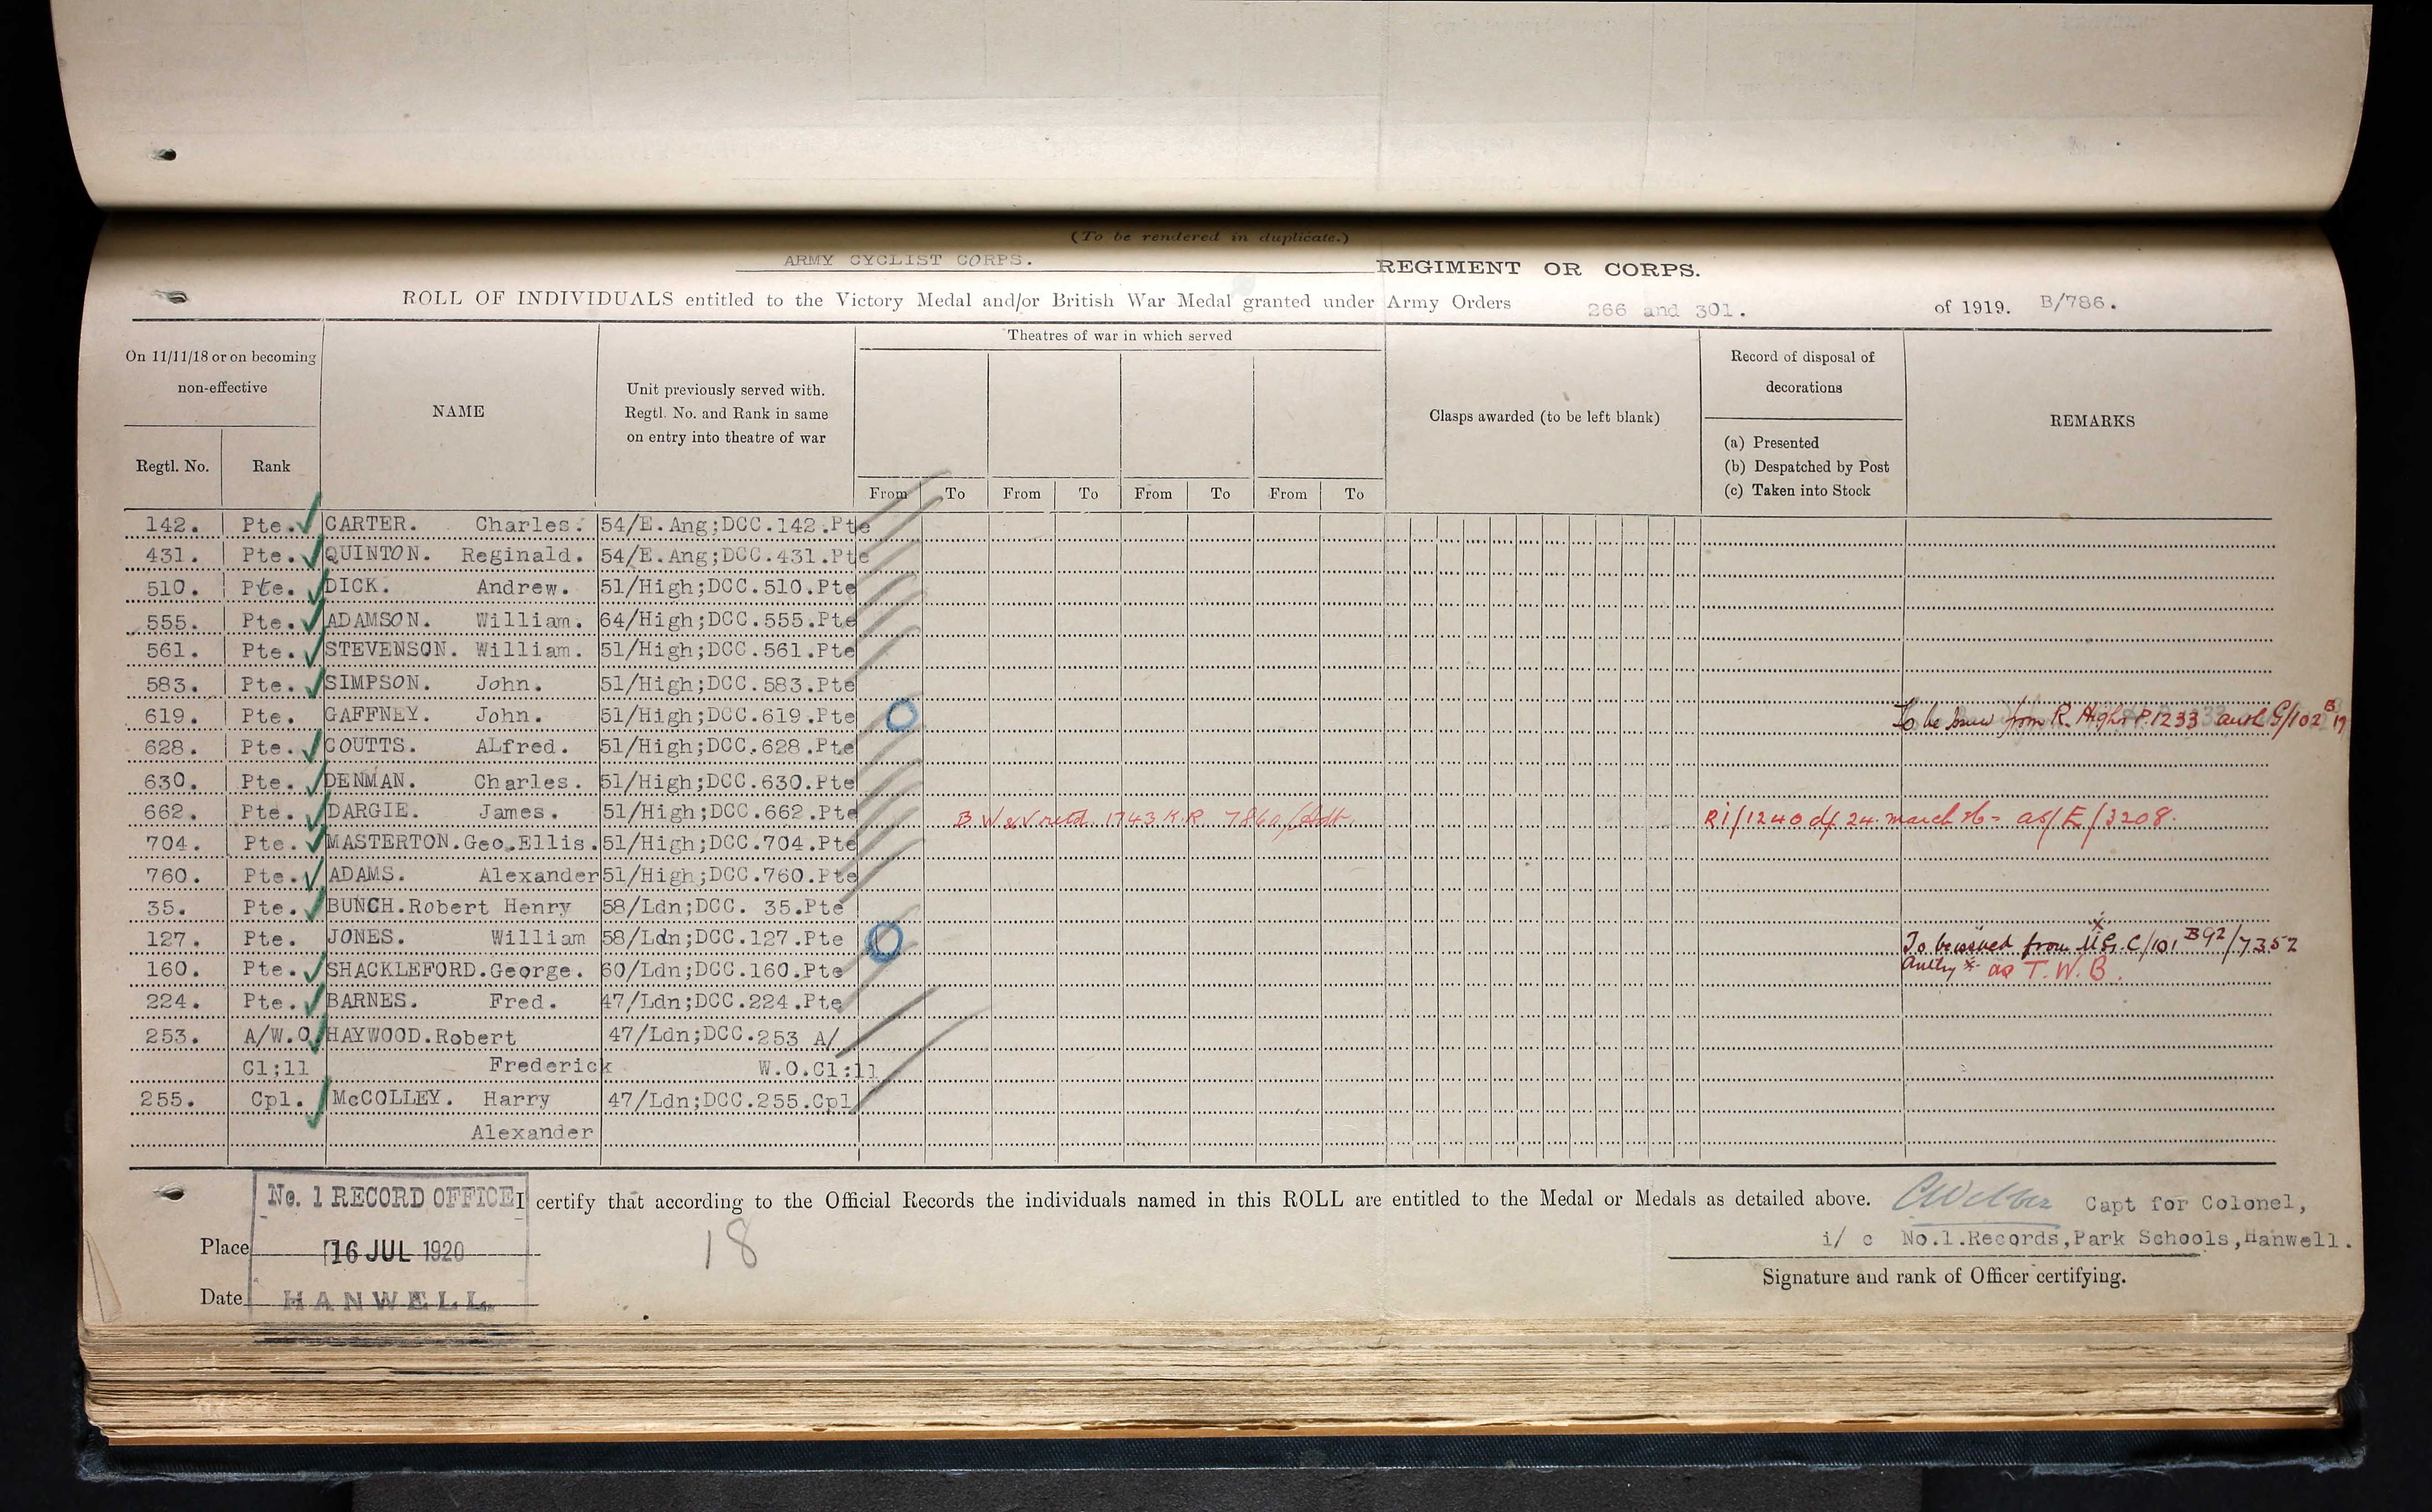 (To be rendered in duplicate.)
ARMY CYCLIST CORPS. REGIMENT OR CORPS.
ROLL OF INDIVIDUALS entitled to the Victory Medal and/or British War Medal granted under Army Orders 266 and 301. of 1919. B/786.
On 11/11/18 or on becoming non-effective
Regtl. No. Rank
NAME
Unit previously served with. Regtl. No. and Rank in same on entry into theatre of war
Theatres of war in which served
From To From To From To From To
Clasps awarded (to be left blank)
Record of disposal of decorations
(a) Presented
(b) Despatched by Post
(c) Taken into Stock
REMARKS
142. Pte. CARTER. Charles. 54/E.Ang;DCC.142.Pte
431. Pte. QUINTON. Reginald. 54/E.Ang;DCC.431.Pte
510. Pte. DICK. Andrew. 51/High;DCC.510.Pte
555. Pte. ADAMSON. William. 64/High;DCC.555.Pte
561. Pte. STEVENSON. William. 51/High;DCC.561.Pte
583. Pte. SIMPSON. John. 51/High;DCC.583.Pte
619. Pte. GAFFNEY. John. 51/High;DCC.619.Pte To be from R. Highrs P.1233 auth G/102 B 19
628. Pte. COUTTS. ALfred. 51/High;DCC.628.Pte
630. Pte. DENMAN. Charles. 51/High;DCC.630.Pte
662. Pte. DARGIE. James. 51/High;DCC.662.Pte B W & V retd. 1743 K.R. 7860/Adt. Ri/1240 df 24. march 26 - as/E/3208.
704. Pte. MASTERTON.Geo.Ellis. 51/High;DCC.704.Pte
760. Pte. ADAMS. Alexander 51/High;DCC.760.Pte
35. Pte. BUNCH.Robert Henry 58/Ldn;DCC. 35.Pte
127. Pte. JONES. William 58/Ldn;DCC.127.Pte To be issued from M.G.C/101 B92/7352
160. Pte. SHACKLEFORD.George. 60/Ldn;DCC.160.Pte Authy x as T.W.B.
224. Pte. BARNES. Fred. 47/Ldn;DCC.224.Pte
253. A/W.O HAYWOOD.Robert 47/Ldn;DCC.253 A/
Cl;11 Frederick W.O.Cl:11
255. Cpl. McCOLLEY. Harry 47/Ldn;DCC.255.Cpl
Alexander
No. 1 RECORD OFFICE
I certify that according to the Official Records the individuals named in this ROLL are entitled to the Medal or Medals as detailed above. CWebber Capt for Colonel,
i/ c No.1.Records,Park Schools,Hanwell.
Place 16 JUL 1920
18
Signature and rank of Officer certifying.
Date HANWELL